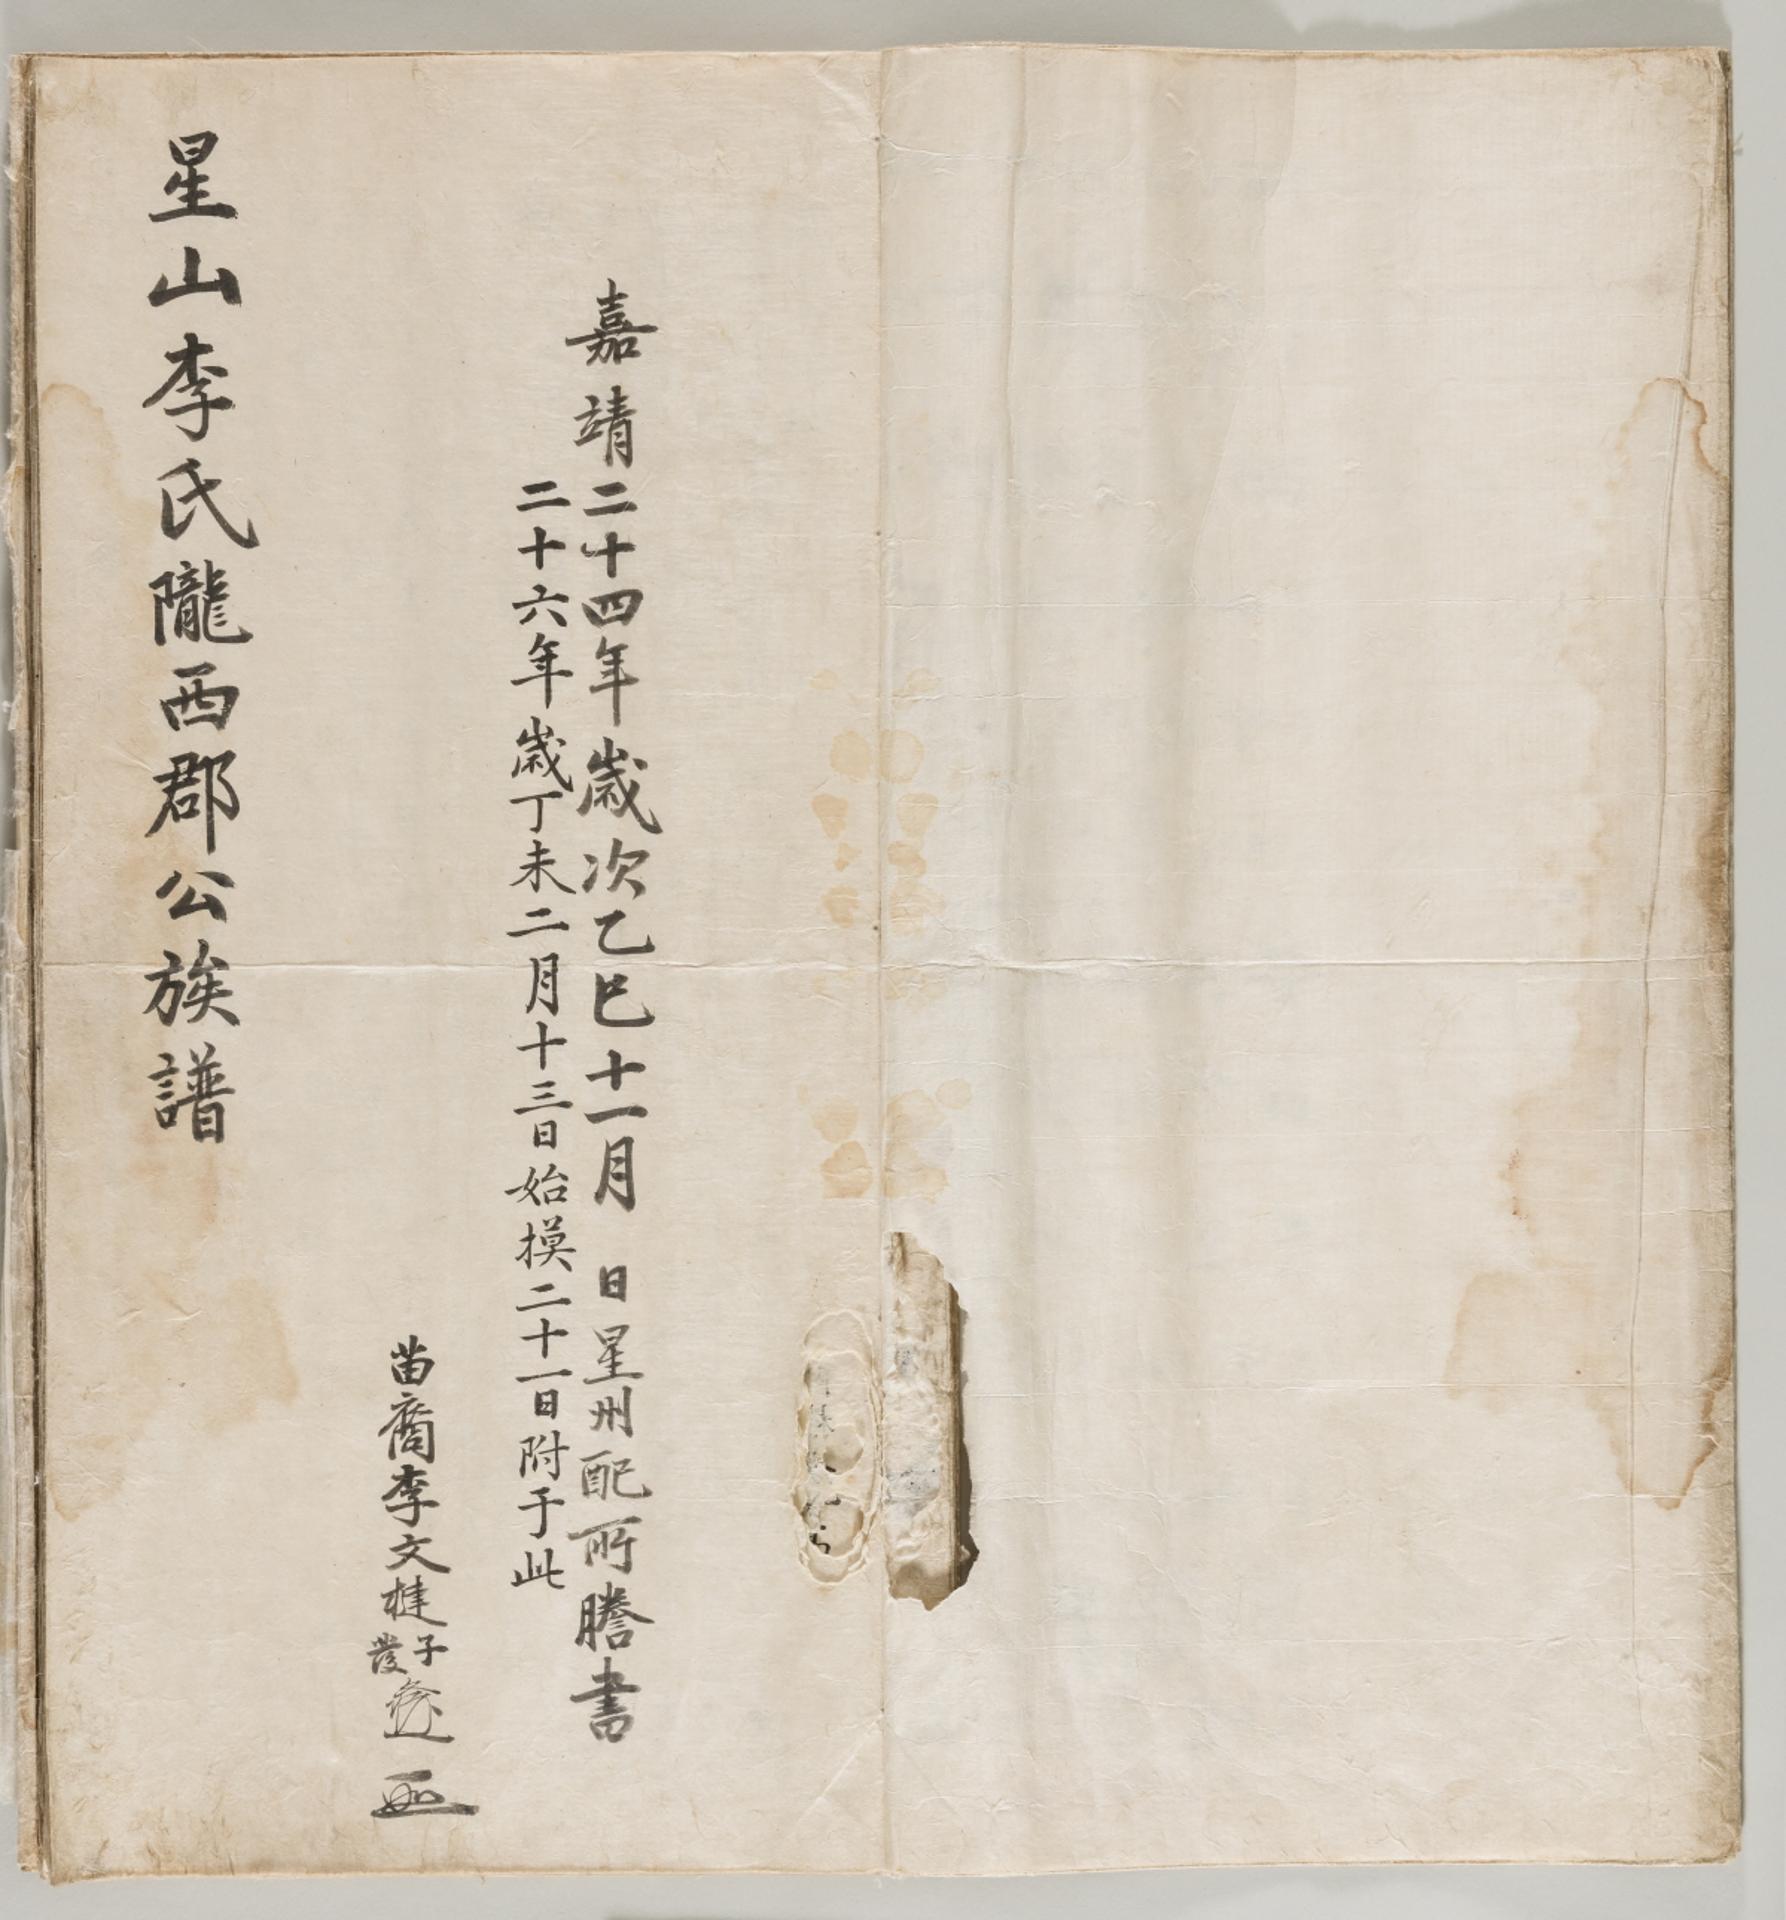 嘉靖二十四年歲次乙巳十一月 日星州配所謄書
二十六年歲丁未二月十三日始摸二十一日附于此
苗裔李文楗子
星山李氏隴西郡公族譜